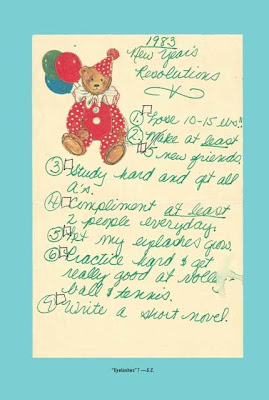 1983
New Year's
Resolutions
1. Lose 10-15 lbs!!
2. Make at least
5 new friends.
3. Study hard and get all
A's.
4. Compliment at least
2 people everyday.
5. Let my eyelashes grow.
6. Practice hard & get
really good at volley-
ball & tennis.
7. Write a short novel.
"Eyelashes"? —E.E.